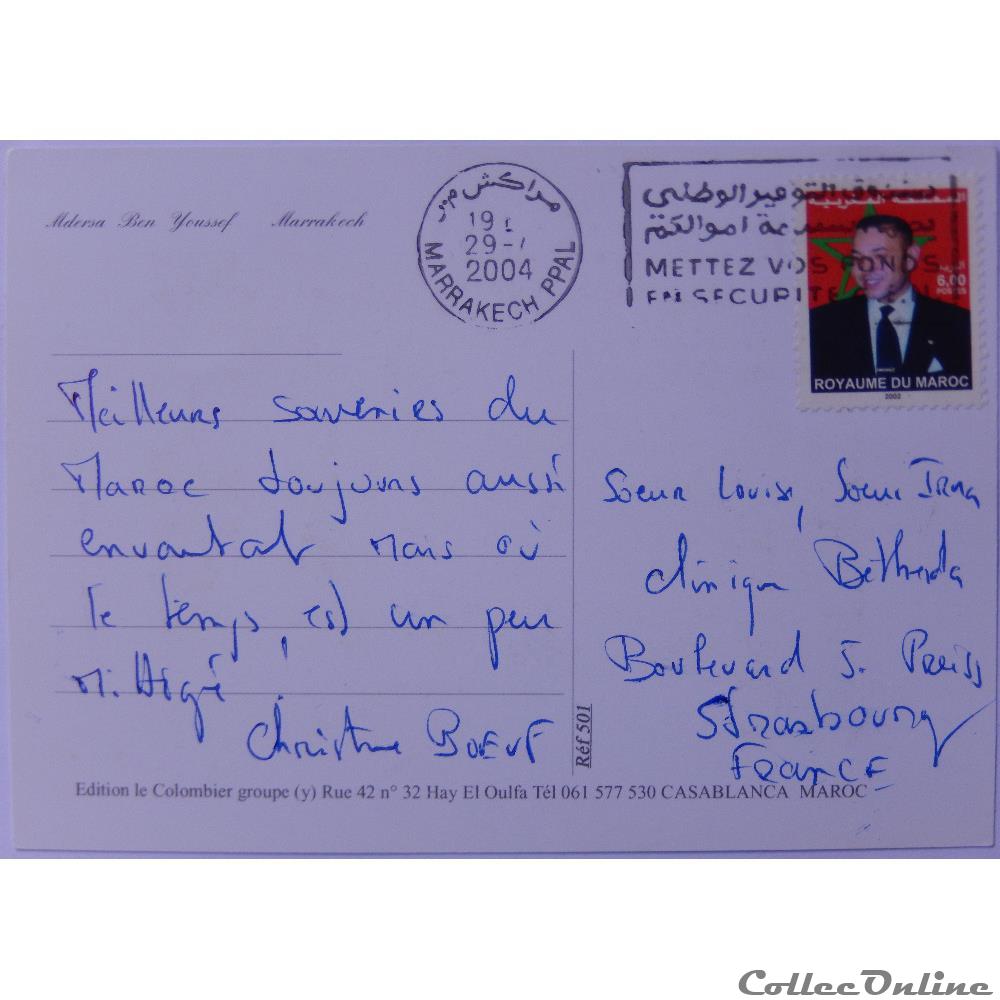 Mdersa Ben Youssef Marrakech
مراكش
19
29-
2004
MARRAKECH PPAL
صندوق التوفير الوطني
اموالكم
METTEZ VOS FONDS
EN SECURITE
المملكة المغربية
البريد
6,00
POSTES
ROYAUME DU MAROC
2002
Meilleurs souvenirs du
Maroc toujours aussi
envoutat mais où
le temps, est un peu
mitigé !
Christine BOEUF
Soeur Louise, Soeur Irma
clinique Béthesda
Boulevard J. Preiss
Strasbourg
FRANCE
Réf 501
Edition le Colombier groupe (y) Rue 42 n° 32 Hay El Oulfa Tél 061 577 530 CASABLANCA MAROC
CollecOnline